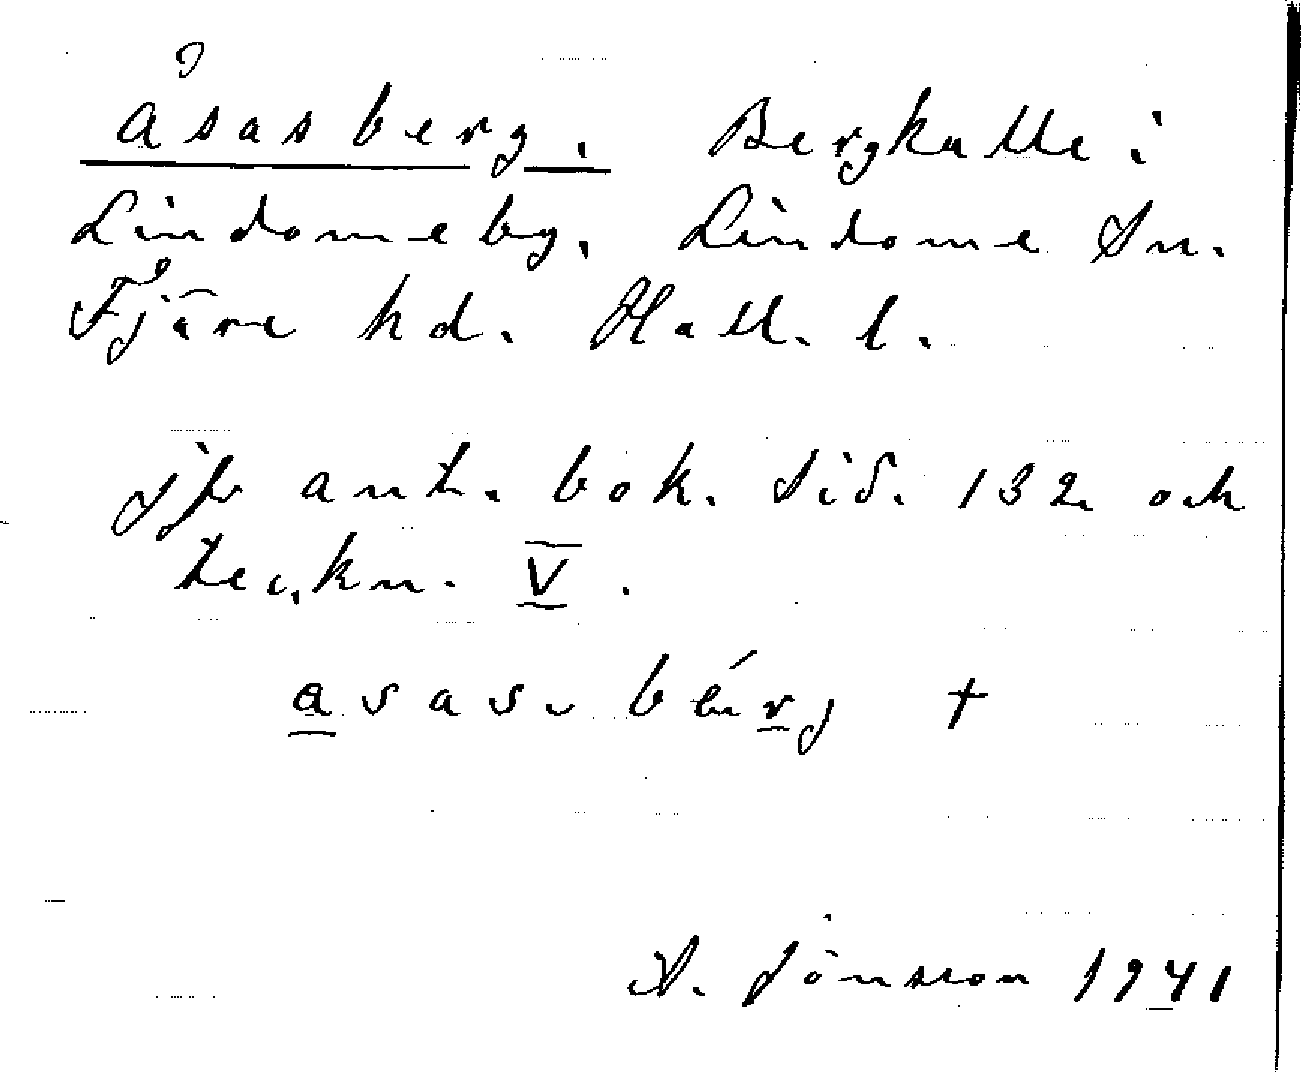 Åsasberg. Bergkulle i
Lindome by. Lindome Sn.
Fjäre hd. Hall. l.
jfr ant. bok. Sid. 132 och
teckn. V.
A. Jönsson 1941